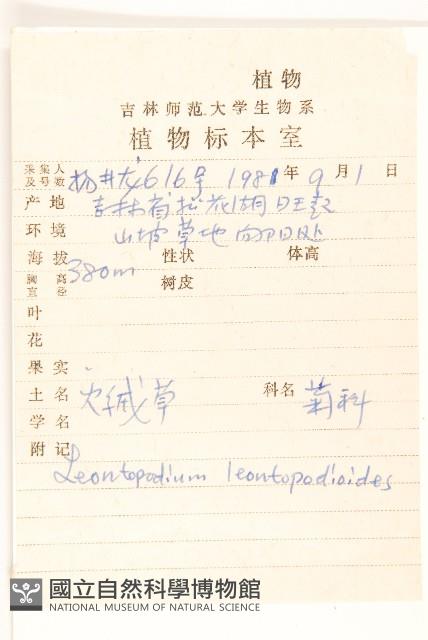 植物
吉林师范大学生物系
植物标本室
采集人及号数 杨井发616号 1981年9月1日
产地 吉林省松花湖旺起
环境 山坡草地向阳处
海拔 380m 性状 体高
胸高直径 树皮
叶
花
果实
土名 火绒草 科名 菊科
学名
附记
Leontopodium leontopodioides
國立自然科學博物館
NATIONAL MUSEUM OF NATURAL SCIENCE